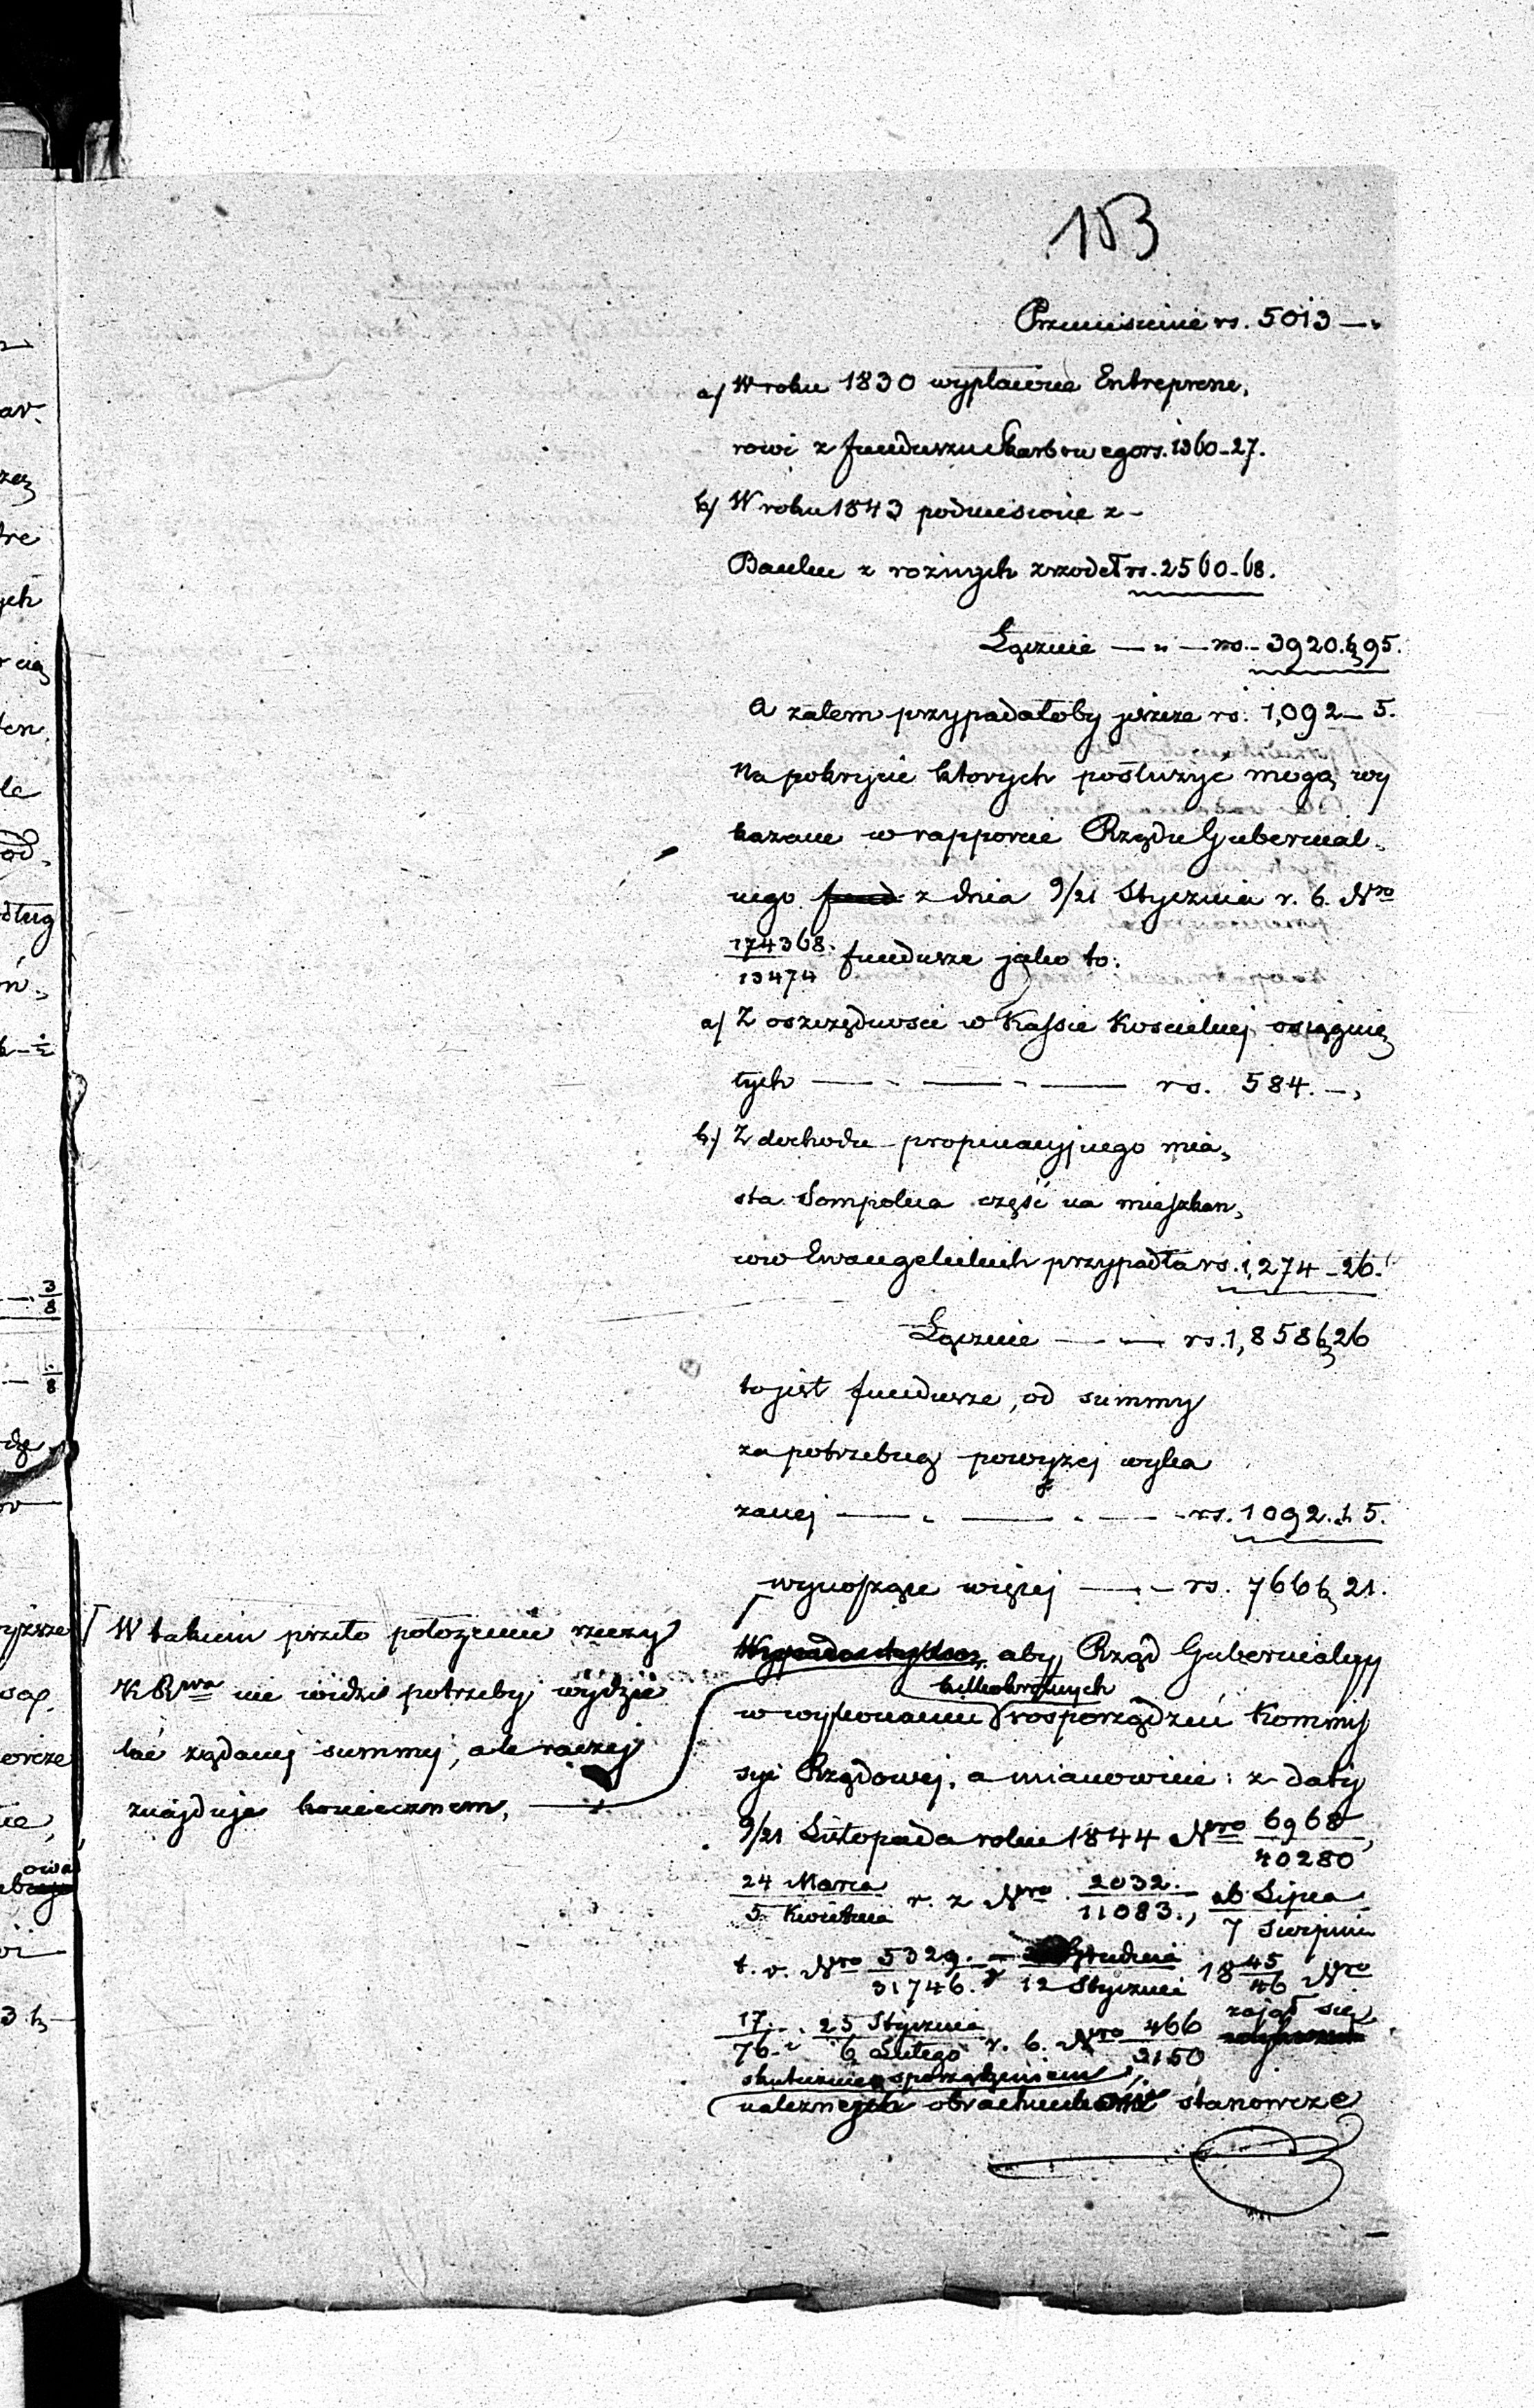 153
Przeniesienie rs. 5013 —„
a/ W roku 1830 wypłacone Entreprene„
rowi z funduszu Skarbowego rs. 1360-27.
b/ W roku 1843 podniesione z –
Banku z roznych zrzodeł rs. 2560-68.
Łącznie — „ — rs. – 3920. k 95.
A zatem przypadałoby jeszcze rs. 1,092 – 5.
Na pokrycie ktorych posłużyć mogą wy
kazane w rapporcie Rządu Gubernial„
nego fund z dnia 9/21 Stycznia r. b. Nro
174368./13474 fundusze jako to:
a/ Z oszczędnosci w Kassie Koscielnej osiągnię
tych — „ — „ — rs. 584. –„
b./ Z dochodu propinacyjnego mia„
sta Sompolna część na mieszkan„
ców Ewangelickich przypadła rs. 1,274 – 26.
Łącznie — „ — rs. 1,858 k 26
to jest fundusze, od summy
zapotrzebnej powyżej wyka
zanej — „ — „ — rs. 1092. k 5.
wynoszące więcej — „ – rs. 766 k 21.
W takim przeto położeniu rzeczy
K R wa nie widzi potrzeby wydzie
lać żądanej summy, ale raczej
znajduje koniecznem, —
aby Rząd Gubernialny
kilkokrotnych
w wykonaniu rosporządzeń Kommis
syi Rządowej, a mianowicie: z daty
9/21 Listopada roku 1844 Nro 6968/40280,
24 Marca/5 Kwietnia r. z Nro 2032./11083., 26 Lipca/7 Sierpnia
t. r. Nro 5329./31746. Grudnia/12 Stycznia 18 45/46 Nro
17./76. i 25 Stycznia/6 Lutego r. b. Nro 466/2150 zajął się
skutecznie sporządzeniem
należnych obrachunków stanowcze